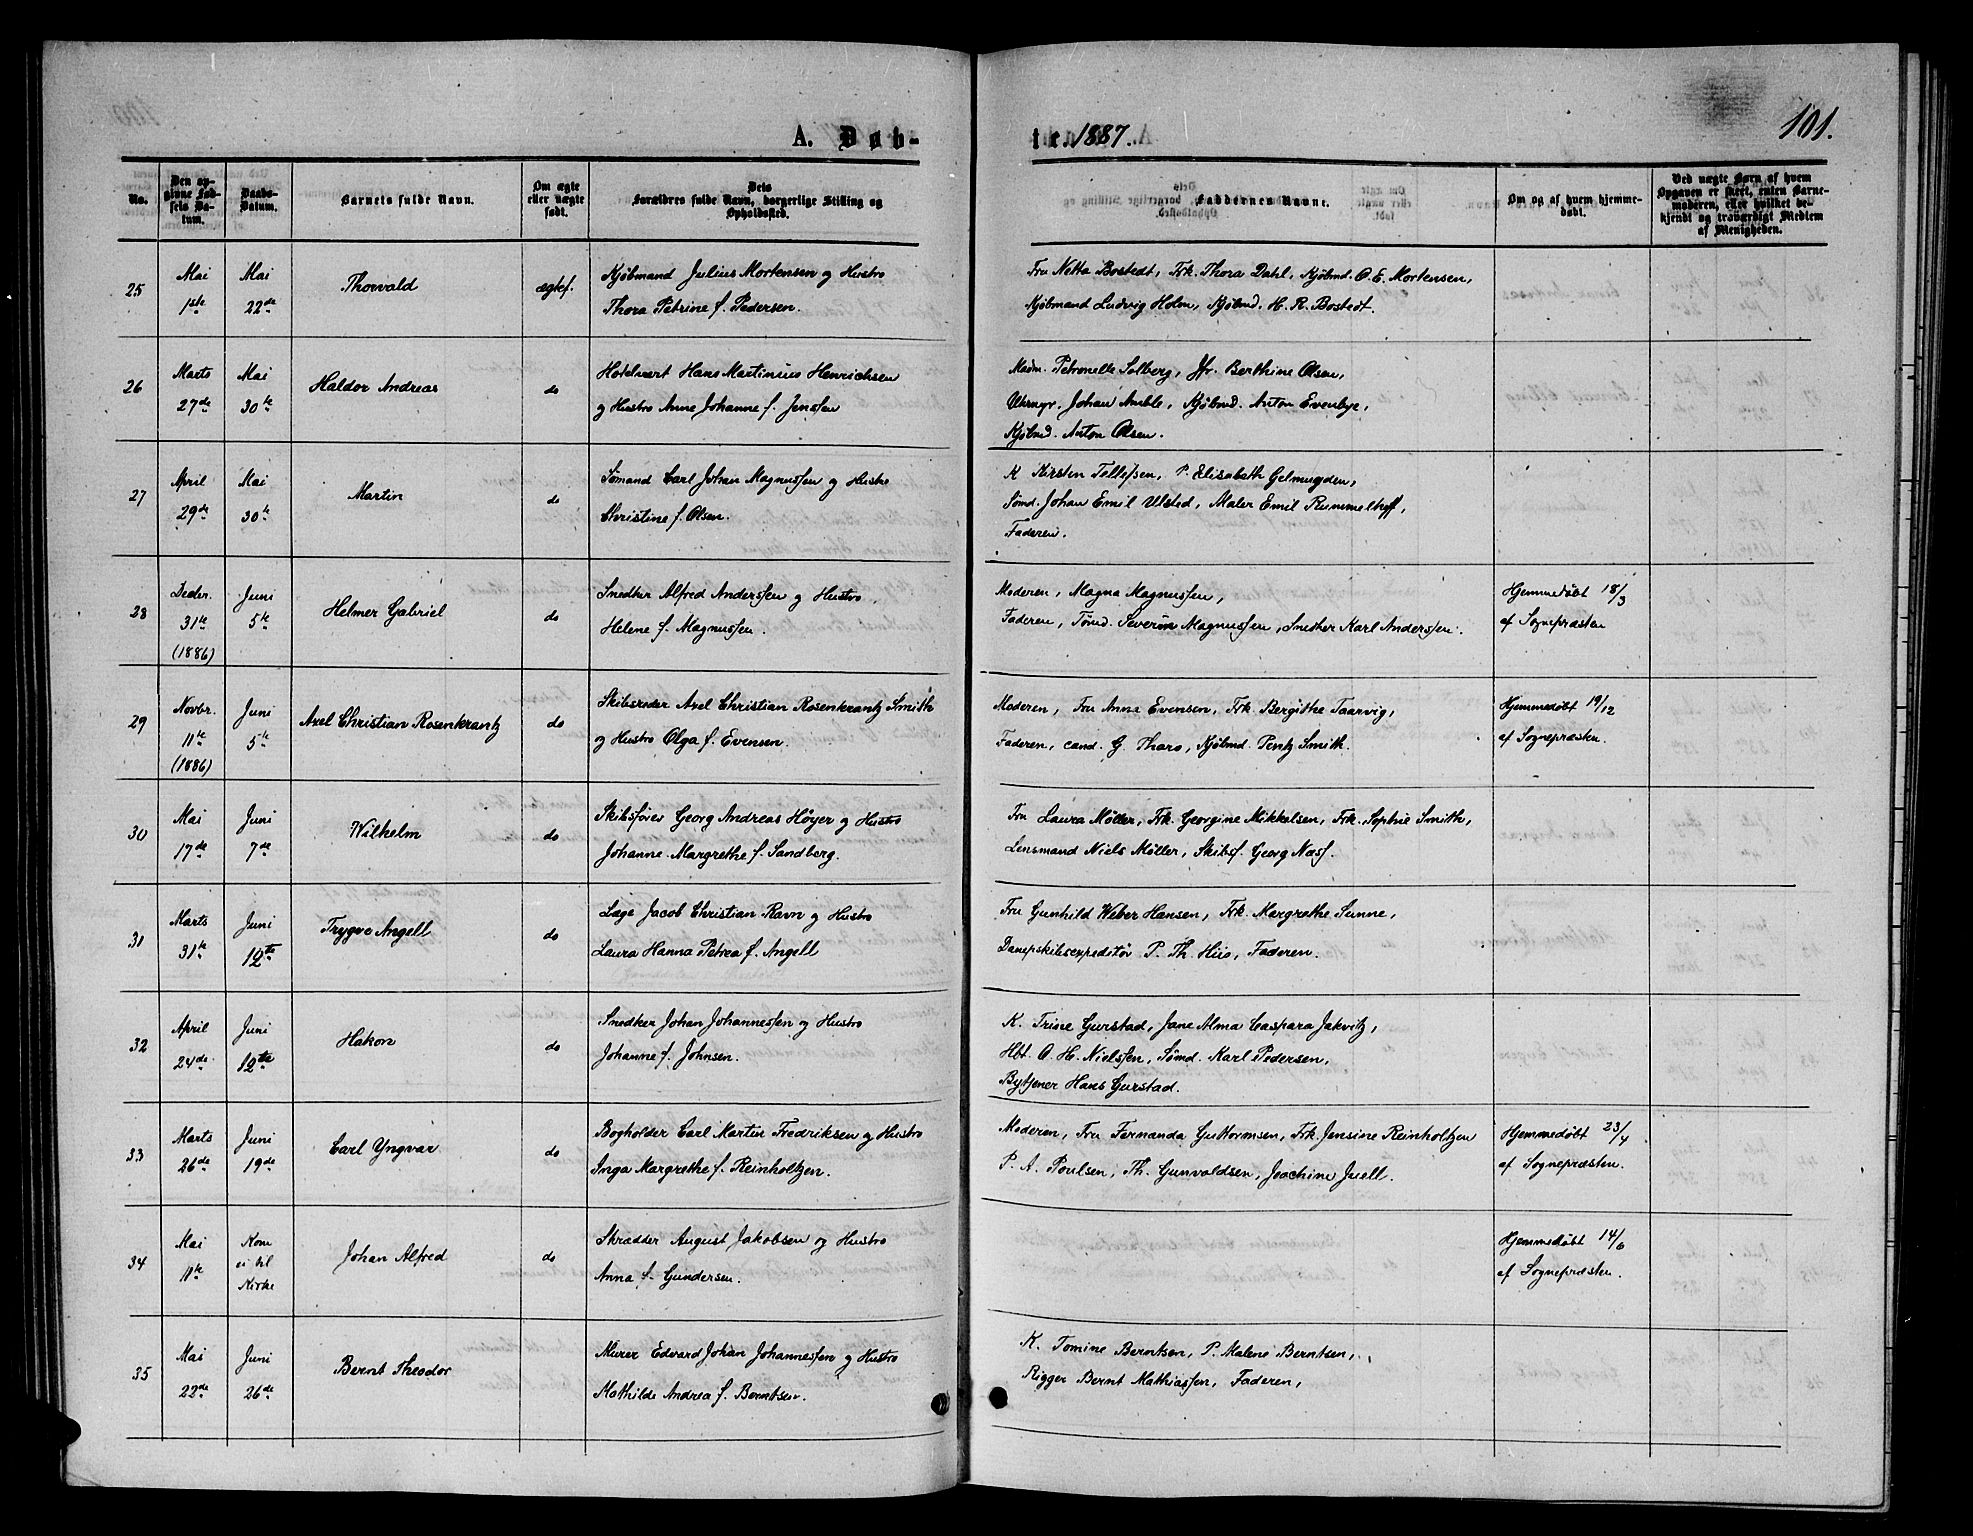 A. Døb-
te. 1887.
101.
No.
Den opgivne Fødsels Datum.
Daabs-Datum.
Barnets fulde Navn.
Om ægte eller uægte født.
Dets Forældres fulde Navn, borgerlige Stilling og Opholdssted.
Faddernes Navne.
Om og af hvem hjemmedøbt.
Ved uægte Børn af hvem Opgaven er skeet, enten Barnemoderen, eller hvilket bekjendt og troværdigt Medlem af Menigheden.
25
Mai 1ste
Mai 22de
Thorvald
ægtef.
Kjøbmand Julius Mortensen og Hustro
Thora Petrine f. Pedersen.
Fru Netta Bostedt, Frk. Thora Dahl, Kjøbmd. O. E. Mortensen,
Kjøbmand Ludvig Holm, Kjøbmd. H. R. Bostedt.
26
Marts 27de
Mai 30te
Haldor Andreas
do
Hotelvert Hans Martinius Henrichsen
og Hustro Anne Johanne f. Jenssen
Madm. Petronelle Solberg, Jfr. Berthine Olsen,
Uhrmgr. Johan Amble, Kjøbmd. Anton Evenbye,
Kjøbmd. Anton Olsen.
27
April 29de
Mai 30te
Martin
do
Sømand Carl Johan Magnussen og Hustro
Christine f. Olsen.
K Kirsten Tellefsen, P. Elisabeth Gelmuyden,
Sømd. Johan Emil Ulsted, Maler Emil Rummelhoff,
Faderen.
28
Decbr. 31te (1886)
Juni 5te
Helmer Gabriel
do
Snedker Alfred Anderssen og Hustro
Helene f. Magnussen.
Moderen, Magna Magnussen,
Faderen, Tømd. Severin Magnussen, Snedker Karl Anderssen.
Hjemmedøbt 18/3
af Sognepræsten
29
Novbr. 11te (1886)
Juni 5te
Axel Christian Rosenkrantz
do
Skibsreder Axel Christian Rosenkrantz Smith
og Hustro Olga f. Evensen.
Moderen, Fru Anna Evensen, Frk. Bergithe Taarvig,
Faderen, cand. G. Thars, Kjøbmd. Pentz Smith.
Hjemmedøbt 19/12
af Sognepræsten.
30
Mai 17de
Juni 7de
Wilhelm
do
Skibsfører Georg Andreas Høyer og Hustro
Johanne Margrethe f. Sandberg.
Fru Laura Møller, Frk. Georgine Mikkelsen, Frk. Sophie Smith,
Lensmand Niels Møller, Skibsf. Georg Næsf.
31
Marts 31te
Juni 12te
Trygve Angell
do
Læge Jacob Christian Ravn og Hustro
Laura Hanna Petrea f. Angell
Fru Gunhild Weber Hansen, Frk. Margrethe Sunne,
Dampskibsexpeditør P. Th. Hiis, Faderen.
32
April 24de
Juni 12te
Hakon
do
Snedker Johan Johannessen og Hustro
Johanne f. Johnsen.
K. Trine Gurstad, Jane Alma Caspara Jakvitz,
Hbt. O. H. Nielssen, Sømd. Karl Pedersen,
Bytjener Hans Gurstad.
33
Marts 26de
Juni 19de
Carl Yngvar
do
Bogholder Carl Martin Fredriksen og Hustro
Inga Margrethe f. Reinholtzen.
Moderen, Fru Fernanda Guttormsen, Frk. Jensine Reinholtzen
P. A. Poulsen, Th. Gunvaldsen, Joachine Juell.
Hjemmedøbt 23/4
af Sognepræsten.
34
Mai 11te
Kom ei til Kirke
Johan Alfred
do
Skrædder August Jakobsen og Hustro
Anna f. Gundersen.
Hjemmedøbt 14/6
af Sognepræsten.
35
Mai 22de
Juni 26de
Bernt Theodor
Murer Edvard Johan Johannessen og Hustro
Mathilde Andrea f. Berntsen.
K. Tomine Berntsen, P. Malene Berntsen,
Rigger Bernt Mathiassen, Faderen,